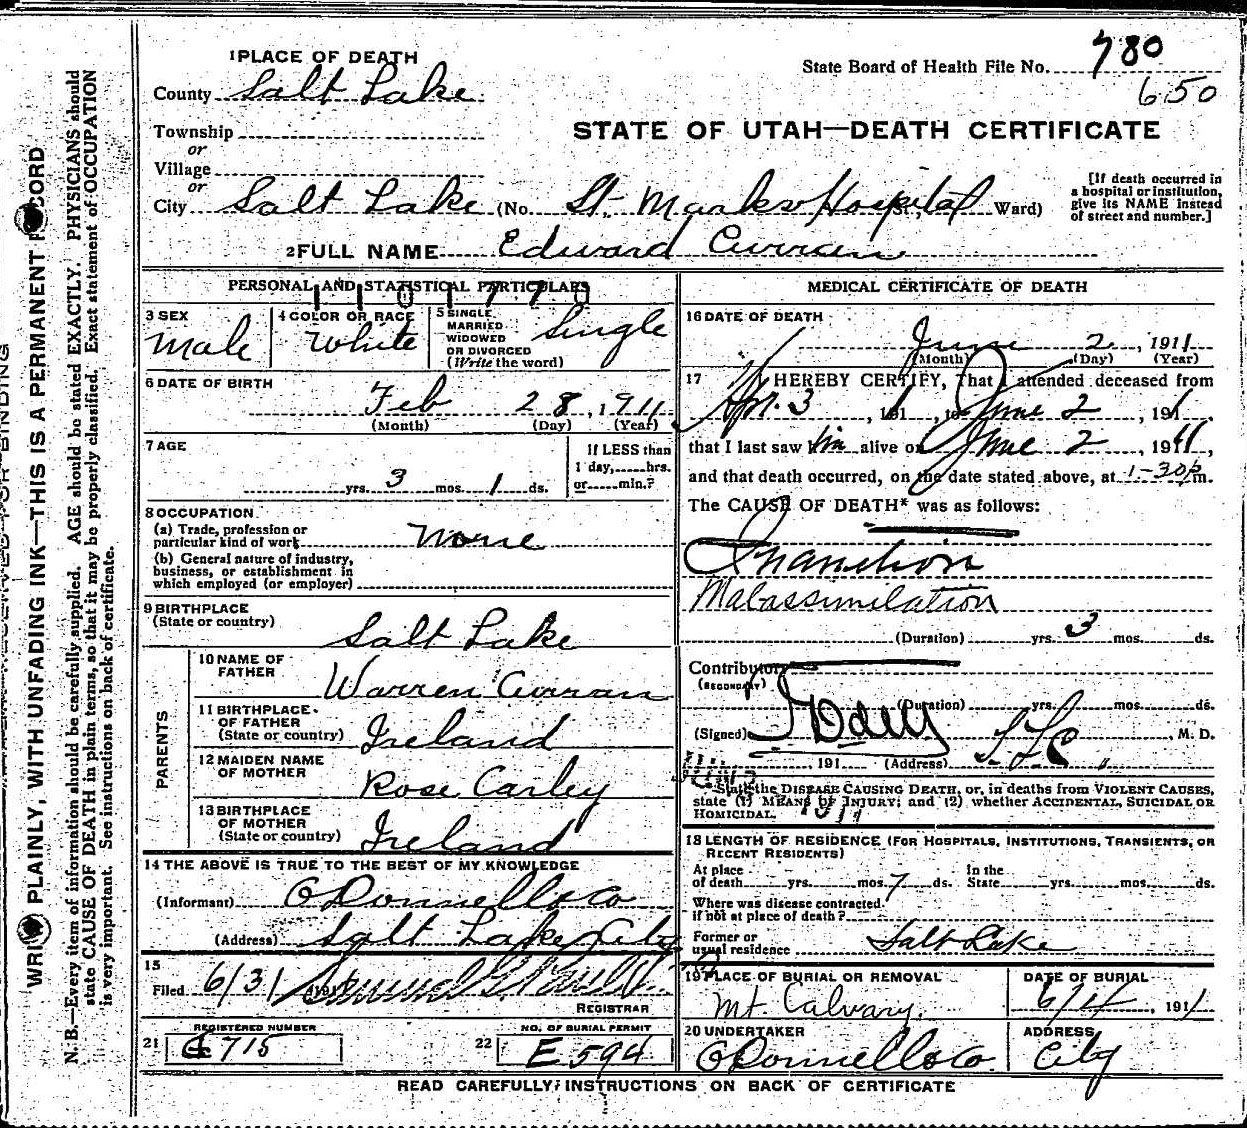 1 PLACE OF DEATH
County Salt Lake
Township
or
Village
or
City Salt Lake (No. St. Marks Hospital St.; Ward)
State Board of Health File No. 780
650
STATE OF UTAH—DEATH CERTIFICATE
[If death occurred in
a hospital or institution,
give its NAME instead
of street and number.]
2 FULL NAME Edward Curran
PERSONAL AND STATISTICAL PARTICULARS
3 SEX
Male
4 COLOR OR RACE
White
5 SINGLE,
MARRIED
WIDOWED
OR DIVORCED
(Write the word)
Single
6 DATE OF BIRTH
Feb 28, 1911
(Month) (Day) (Year)
7 AGE
yrs. 3 mos. 1 ds.
If LESS than
1 day, hrs.
or min.?
8 OCCUPATION
(a) Trade, profession or
particular kind of work None
(b) General nature of industry,
business, or establishment in
which employed (or employer)
9 BIRTHPLACE
(State or country)
Salt Lake
PARENTS
10 NAME OF
FATHER
Warren Curran
11 BIRTHPLACE
OF FATHER
(State or country) Ireland
12 MAIDEN NAME
OF MOTHER
Rose Carley
13 BIRTHPLACE
OF MOTHER
(State or country) Ireland
14 THE ABOVE IS TRUE TO THE BEST OF MY KNOWLEDGE
(Informant) O Donnell & Co
(Address) Salt Lake City
15
Filed 6/3
REGISTRAR
21 REGISTERED NUMBER
715
22 NO. OF BURIAL PERMIT
E 594
MEDICAL CERTIFICATE OF DEATH
16 DATE OF DEATH
June 2, 1911
(Month) (Day) (Year)
17 I HEREBY CERTIFY, That I attended deceased from
Apr. 3, 191 , to June 2, 191 ,
that I last saw him alive on June 2 1911,
and that death occurred, on the date stated above, at 1-30p m.
The CAUSE OF DEATH* was as follows:
Inanition
Malassimilation
(Duration) yrs. 3 mos. ds.
Contributory
(SECONDARY)
(Duration) yrs. mos. ds.
(Signed) , M. D.
191 (Address) S L C
*State the DISEASE CAUSING DEATH, or, in deaths from VIOLENT CAUSES,
state (1) MEANS OF INJURY; and (2) whether ACCIDENTAL, SUICIDAL OR
HOMICIDAL.
18 LENGTH OF RESIDENCE (FOR HOSPITALS, INSTITUTIONS, TRANSIENTS, OR
RECENT RESIDENTS)
At place
of death yrs. mos. 7 ds. In the
State yrs. mos. ds.
Where was disease contracted
if not at place of death?
Former or
usual residence Salt Lake
19 PLACE OF BURIAL OR REMOVAL
Mt. Calvary
DATE OF BURIAL
6/4, 1911
20 UNDERTAKER
O Donnell & Co.
ADDRESS
City
READ CAREFULLY INSTRUCTIONS ON BACK OF CERTIFICATE
PLAINLY, WITH UNFADING INK—THIS IS A PERMANENT RECORD
N. B.—Every item of information should be carefully supplied. AGE should be stated EXACTLY. PHYSICIANS should
state CAUSE OF DEATH in plain terms, so that it may be properly classified. Exact statement of OCCUPATION
is very important. See instructions on back of certificate.